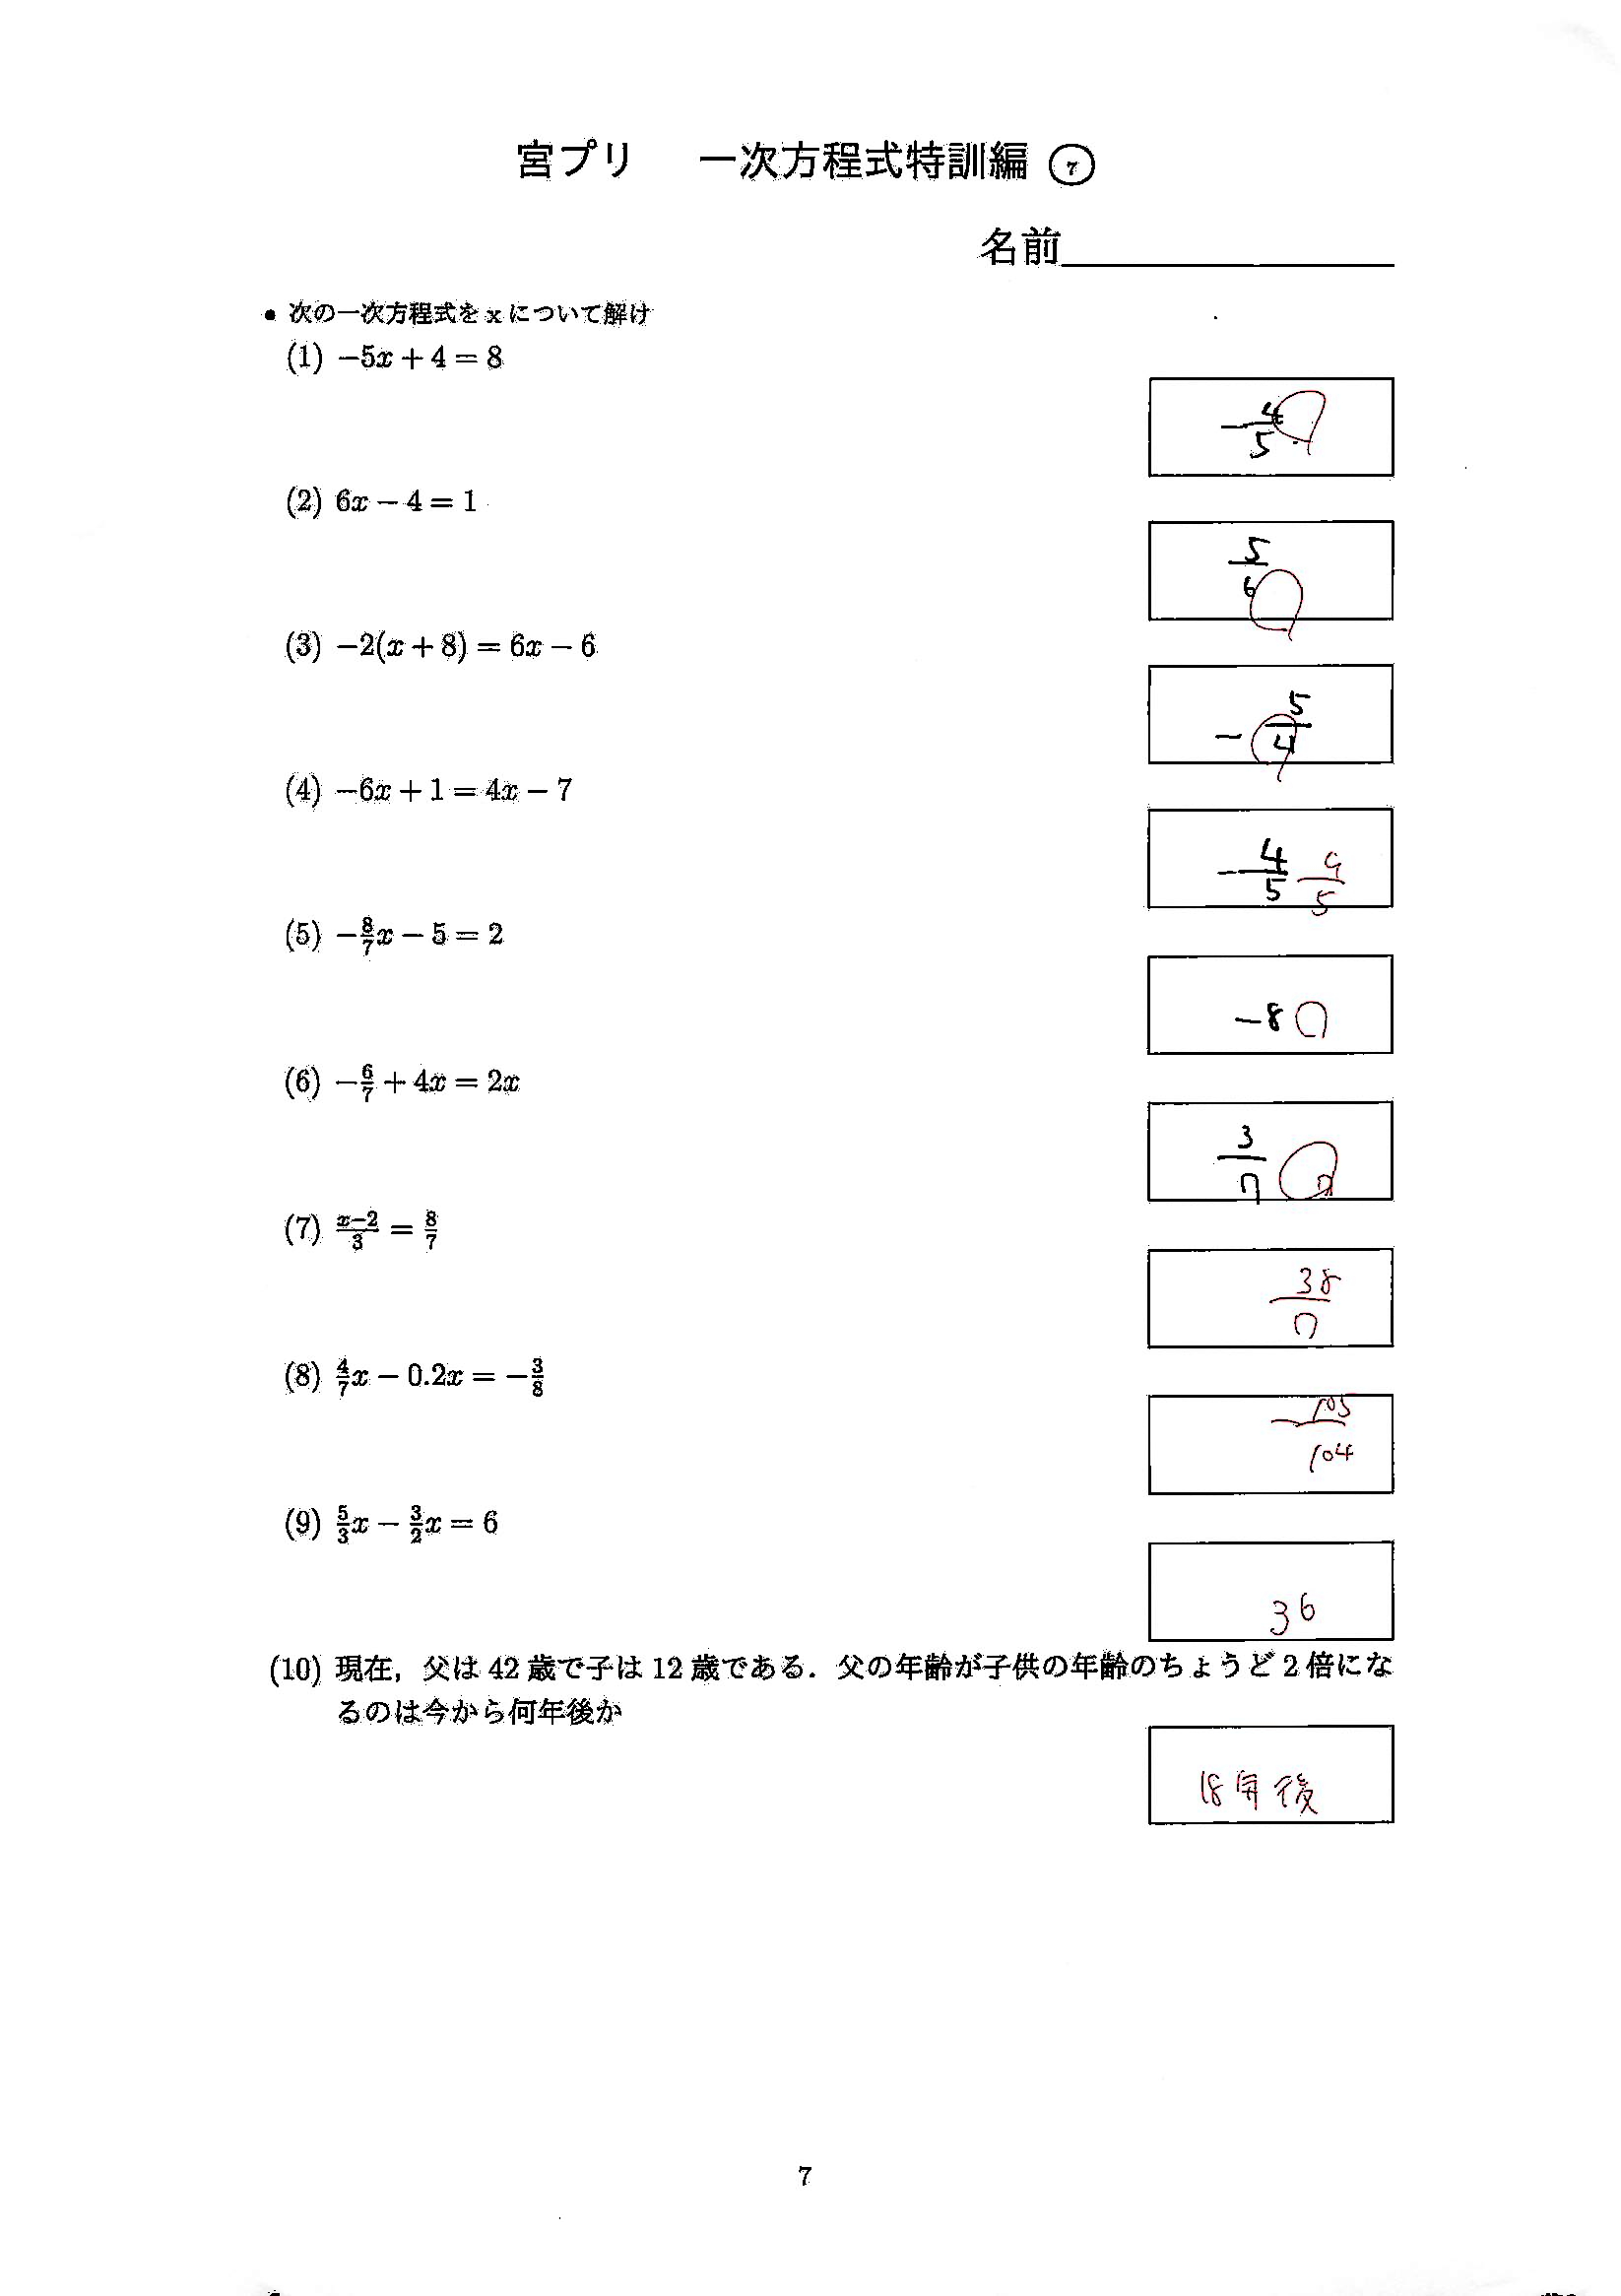 宮プリ 一次方程式特訓編 ⑦
名前
• 次の一次方程式をxについて解け
(1) −5x + 4 = 8
−4/5
(2) 6x − 4 = 1
5/6
(3) −2(x + 8) = 6x − 6
−5/4
(4) −6x + 1 = 4x − 7
−4/5 4/5
(5) −8/7x − 5 = 2
−8
(6) −6/7 + 4x = 2x
3/7
(7) x−2/3 = 8/7
38/7
(8) 4/7x − 0.2x = −3/8
−105/104
(9) 5/3x − 3/2x = 6
36
(10) 現在，父は 42 歳で子は 12 歳である．父の年齢が子供の年齢のちょうど 2 倍にな
るのは今から何年後か
18年後
7